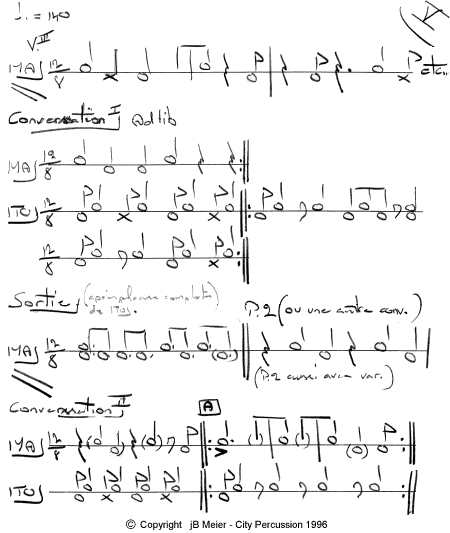 ♩. = 140
V
VIII
MAJ 12/8 etc..
Conversation I Ad lib
MAJ 12/8
ITOJ 12/8
12/8
Sortie (après phrase complète
de ITOJ.
P.2 (ou une autre conv.)
MAJ 12/8
(P.2 aussi avec var.)
Conversation II A
MAJ 12/8
ITOJ
© Copyright jB Meier - City Percussion 1996